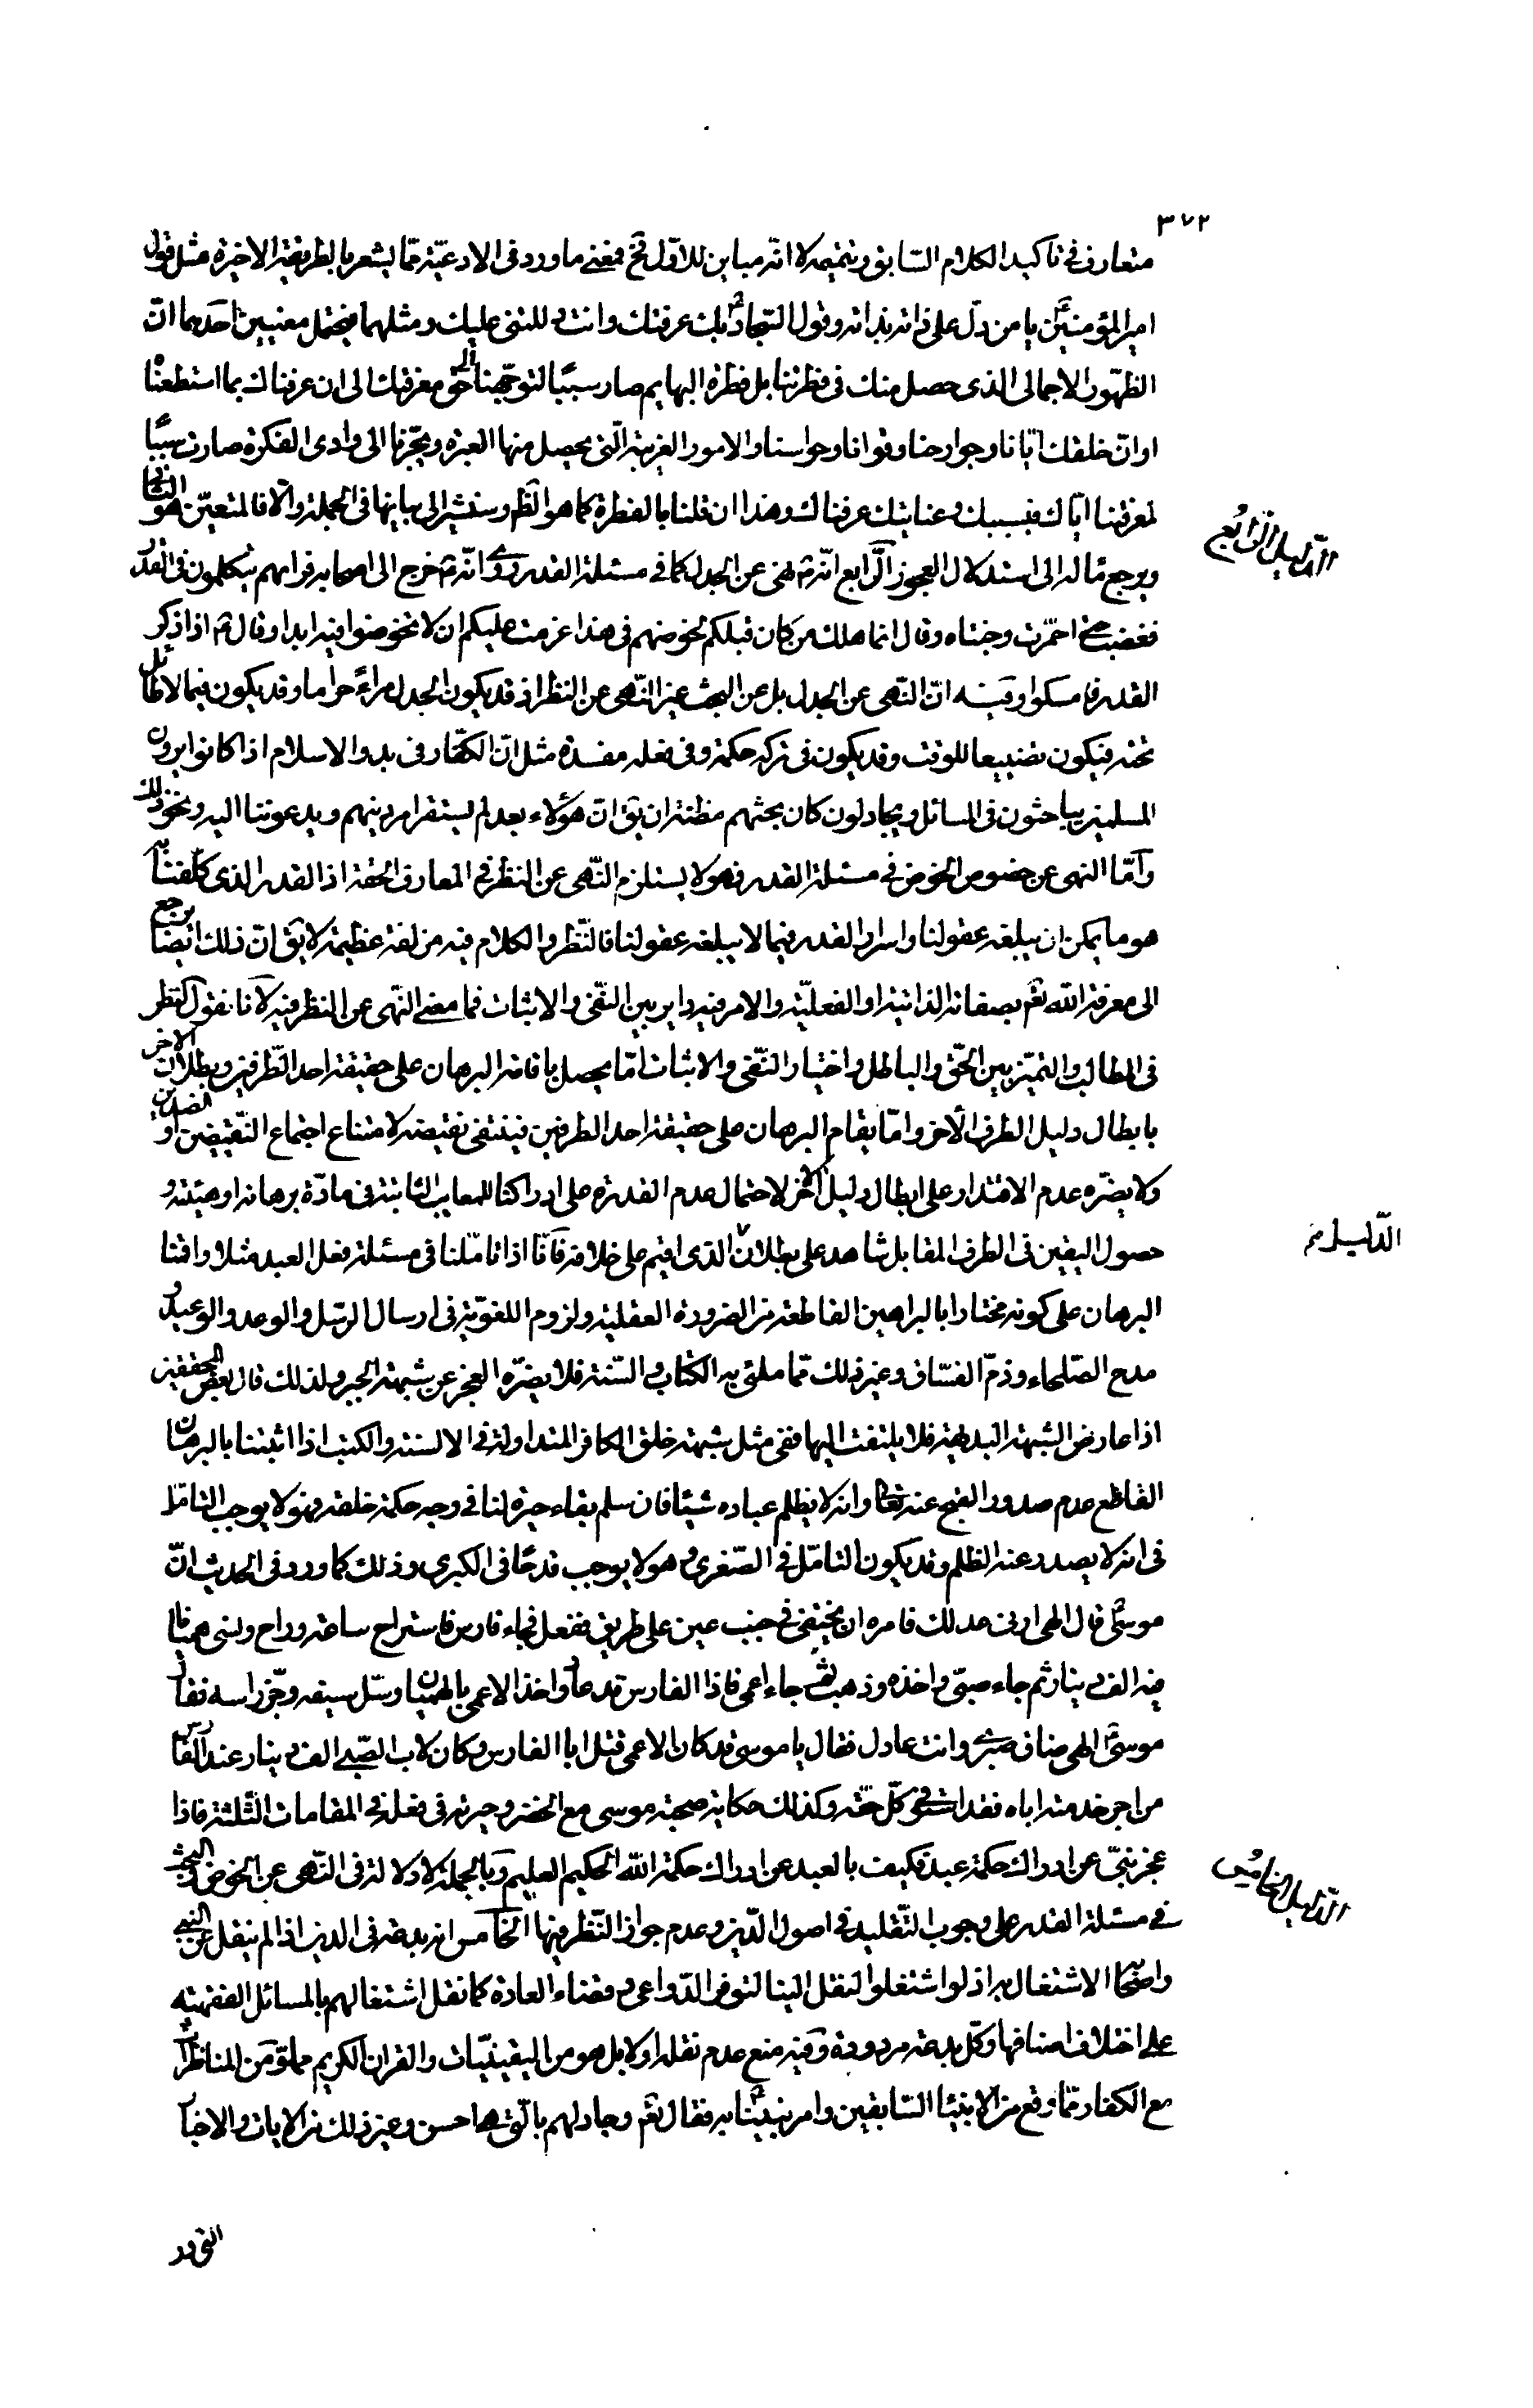 ٣٧٢
متعارف فی تاکید الکلام السّابق و تتمیمه لا انّه مباین للاوّل فح فمعنی ما ورد فی الادعیّة ممّا یشعر بالطریقة الاخیرة مثل قول
امیر المؤمنینؑ یا من دلّ علی ذاته بذاته و قول السّجادؑ بک عرفتک و انت دللتنی علیک و مثلهما یحتمل معنیین احدهما انّ
الظهور الاجمالی الذی حصل منک فی فطرتنا بل فطرة البهایم صار سببًا لتوجّهنا الی حق معرفتک الی ان عرفناک بما استطعنا
او انّ خلقک ایّانا و جوارحنا و قوانا و حواسنا و الامور الغریبة الّتی یحصل منها العبرة و یجرّنا الی وادی الفکرة صارت سببًا
لمعرفتنا ایّاک فبسببک و عنایتک عرفناک و هذا ان قلنا بالفطرة کما هو الظ و سنشیر الی بیانها فی الجملة و الّا فالمتعیّن هو الثانی
و یرجع مٰاله الی استدلال العجوز الرّابع انّهؐ نهی عن الجدل کما فی مسئلة القدر روی انّهؐ خرج الی اصحابه فراٰهم یتکلمون فی القدر
فغضب حتی احمّرت وجنتاه و قال انما هلک من کان قبلکم لخوضهم فی هذا عزمت علیکم ان لا تخوضوا فیه ابدا و قالؐ اذا ذکر
القدر فامسکوا و فیه انّ النّهی عن الجدل بل عن البحث غیر النّهی عن النظر اذ قد یکون الجدل مراءً حراما و قد یکون فیما لا طائل
تحته فیکون تضییعا للوقت و قد یکون فی ترکه حکمة و فی فعله مفسدة مثل انّ الکفّار فی بدو الاسلام اذا کانوا یرون
المسلمین یباحثون فی المسائل و یجادلون کان بحثهم مظنّة ان یق انّ هؤلاء بعد لم یستقر امر دینهم و یدعوننا الیه و نحو ذلک
و امّا النهی عن خصوص الخوض فی مسئلة القدر فهو لا یستلزم النّهی عن النظر فی المعارف الحقة اذ القدر الذی کلّفنا به
هو ما یمکن ان یبلغه عقولنا و اسرار القدر فیما لا یبلغه عقولنا فالنّظر و الکلام فیه مزلقة عظیمة لا یق انّ ذلک ایضا یرجع
الی معرفة اللّه تعؐ بصفاته الذاتیة او الفعلیّة و الامر فیه دایر بین النّفی و الاثبات فما معنی النّهی عن النظر فیه لانّا نقول النظر
فی المطالب و التمیّز بین الحّق و الباطل و اختیار النّفی و الاثبات امّا یحصل باقامة البرهان علی حقیقة احد الطّرفین و بطلان الاخر
بابطال دلیل الطرف الآخر و امّا بقیام البرهان علی حقیقة احد الطرفین فینتفی نقیضه لامتناع اجتماع النّقیضین او الضدین
و لا یضرّه عدم الاقتدار علی ابطال دلیل الاخر لاحتمال عدم القدرة علی ادراکنا للمعایب الثابتة فی مادّة برهانه او هیئته و
حصول الیقین فی الطرف المقابل شاهد علی بطلان الذی اقیم علی خلافه فانّا اذا تامّلنا فی مسئلة فعل العبد مثلا و اقمنا
البرهان علی کونه مختارا بالبراهین القاطعة من الضرورة العقلیة و لزوم اللغویّة فی ارسال الرّسل و الوعد و الوعید و
مدح الصّلحاء و ذمّ الفسّاق و غیر ذلک ممّا ملئ به الکتاب و السّنة فلا یضرّه العجز عن شبهة الجبر و لذلک قال بعض المحققین
اذا عارض الشّبهة البدیهة فلا یلتفت الیها ففی مثل شبهة خلق الکافر المتداولة فی الالسنة و الکتب اذا اثبتنا بالبرهان
القاطع عدم صدور القبح عنه تعالی و انه لا یظلم عباده شیئا فان سلم بقاء حیرة لنا فی وجه حکمة خلقه فهو لا یوجب التامّل
فی انه لا یصدر عنه الظلم و قد یکون التامّل فی الصّغری و هو لا یوجب قدحًا فی الکبری و ذلک کما ورد فی الحدیث انّ
موسیؑ قال الهی ارنی عدلک فامره ان یختفی فی جنب عین علی طریق ففعل فجاء فارس فاستراح ساعة و راح و نسی همیانا
فیه الف دینار ثم جاء صبیّ و اخذه و ذهب ثم جاء اعمی فاذا الفارس قد عاد و اخذ الاعمی بالهمیان و سّل سیفه و جّز راسه فقال
موسیؑ الهی ضاق صبری و انت عادل فقال یا موسی قد کان الاعمی قتل ابا الفارس و کان لاب الصّبی الف دینار عند الفارس
من اجر خدمته اباه فقد استوفی کلّ حقّه و کذلک حکایة صحبة موسی مع الخضر و حیرته فی فعله فی المقامات الثّلثة فاذا
عجز نبیّ عن ادراک حکمة عبد فکیف بالعبد عن ادراک حکمة اللّه الحکیم العلیم و بالجملة لا دلالة فی النّهی عن الخوض و البحث
فی مسئلة القدر علی وجوب التّقلید فی اصول الدّین و عدم جواز النّظر فیها الخامس انه بدعة فی الدین اذ لم ینقل عن النبی
و اصحابه الاشتغال به اذ لو اشتغلوا لنقل الینا لتوفر الدّواعی و قضاء العادة کما نقل اشتغالهم بالمسائل الفقهیة
علی اختلاف اصنافها و کلّ بدعة مردودة و فیه منع عدم نقله اولا بل هو من الیقینیّات و القران الکریم مملوّ من المناظرات
مع الکفار ممّا وقع من الانبیٰا السّابقین و امر نبیّناؐ به فقال تعؐ و جادلهم بالّتی هی احسن و غیر ذلک من الایات و الاخبار
الدّلیل الرّابع
الدّلیل الخامس